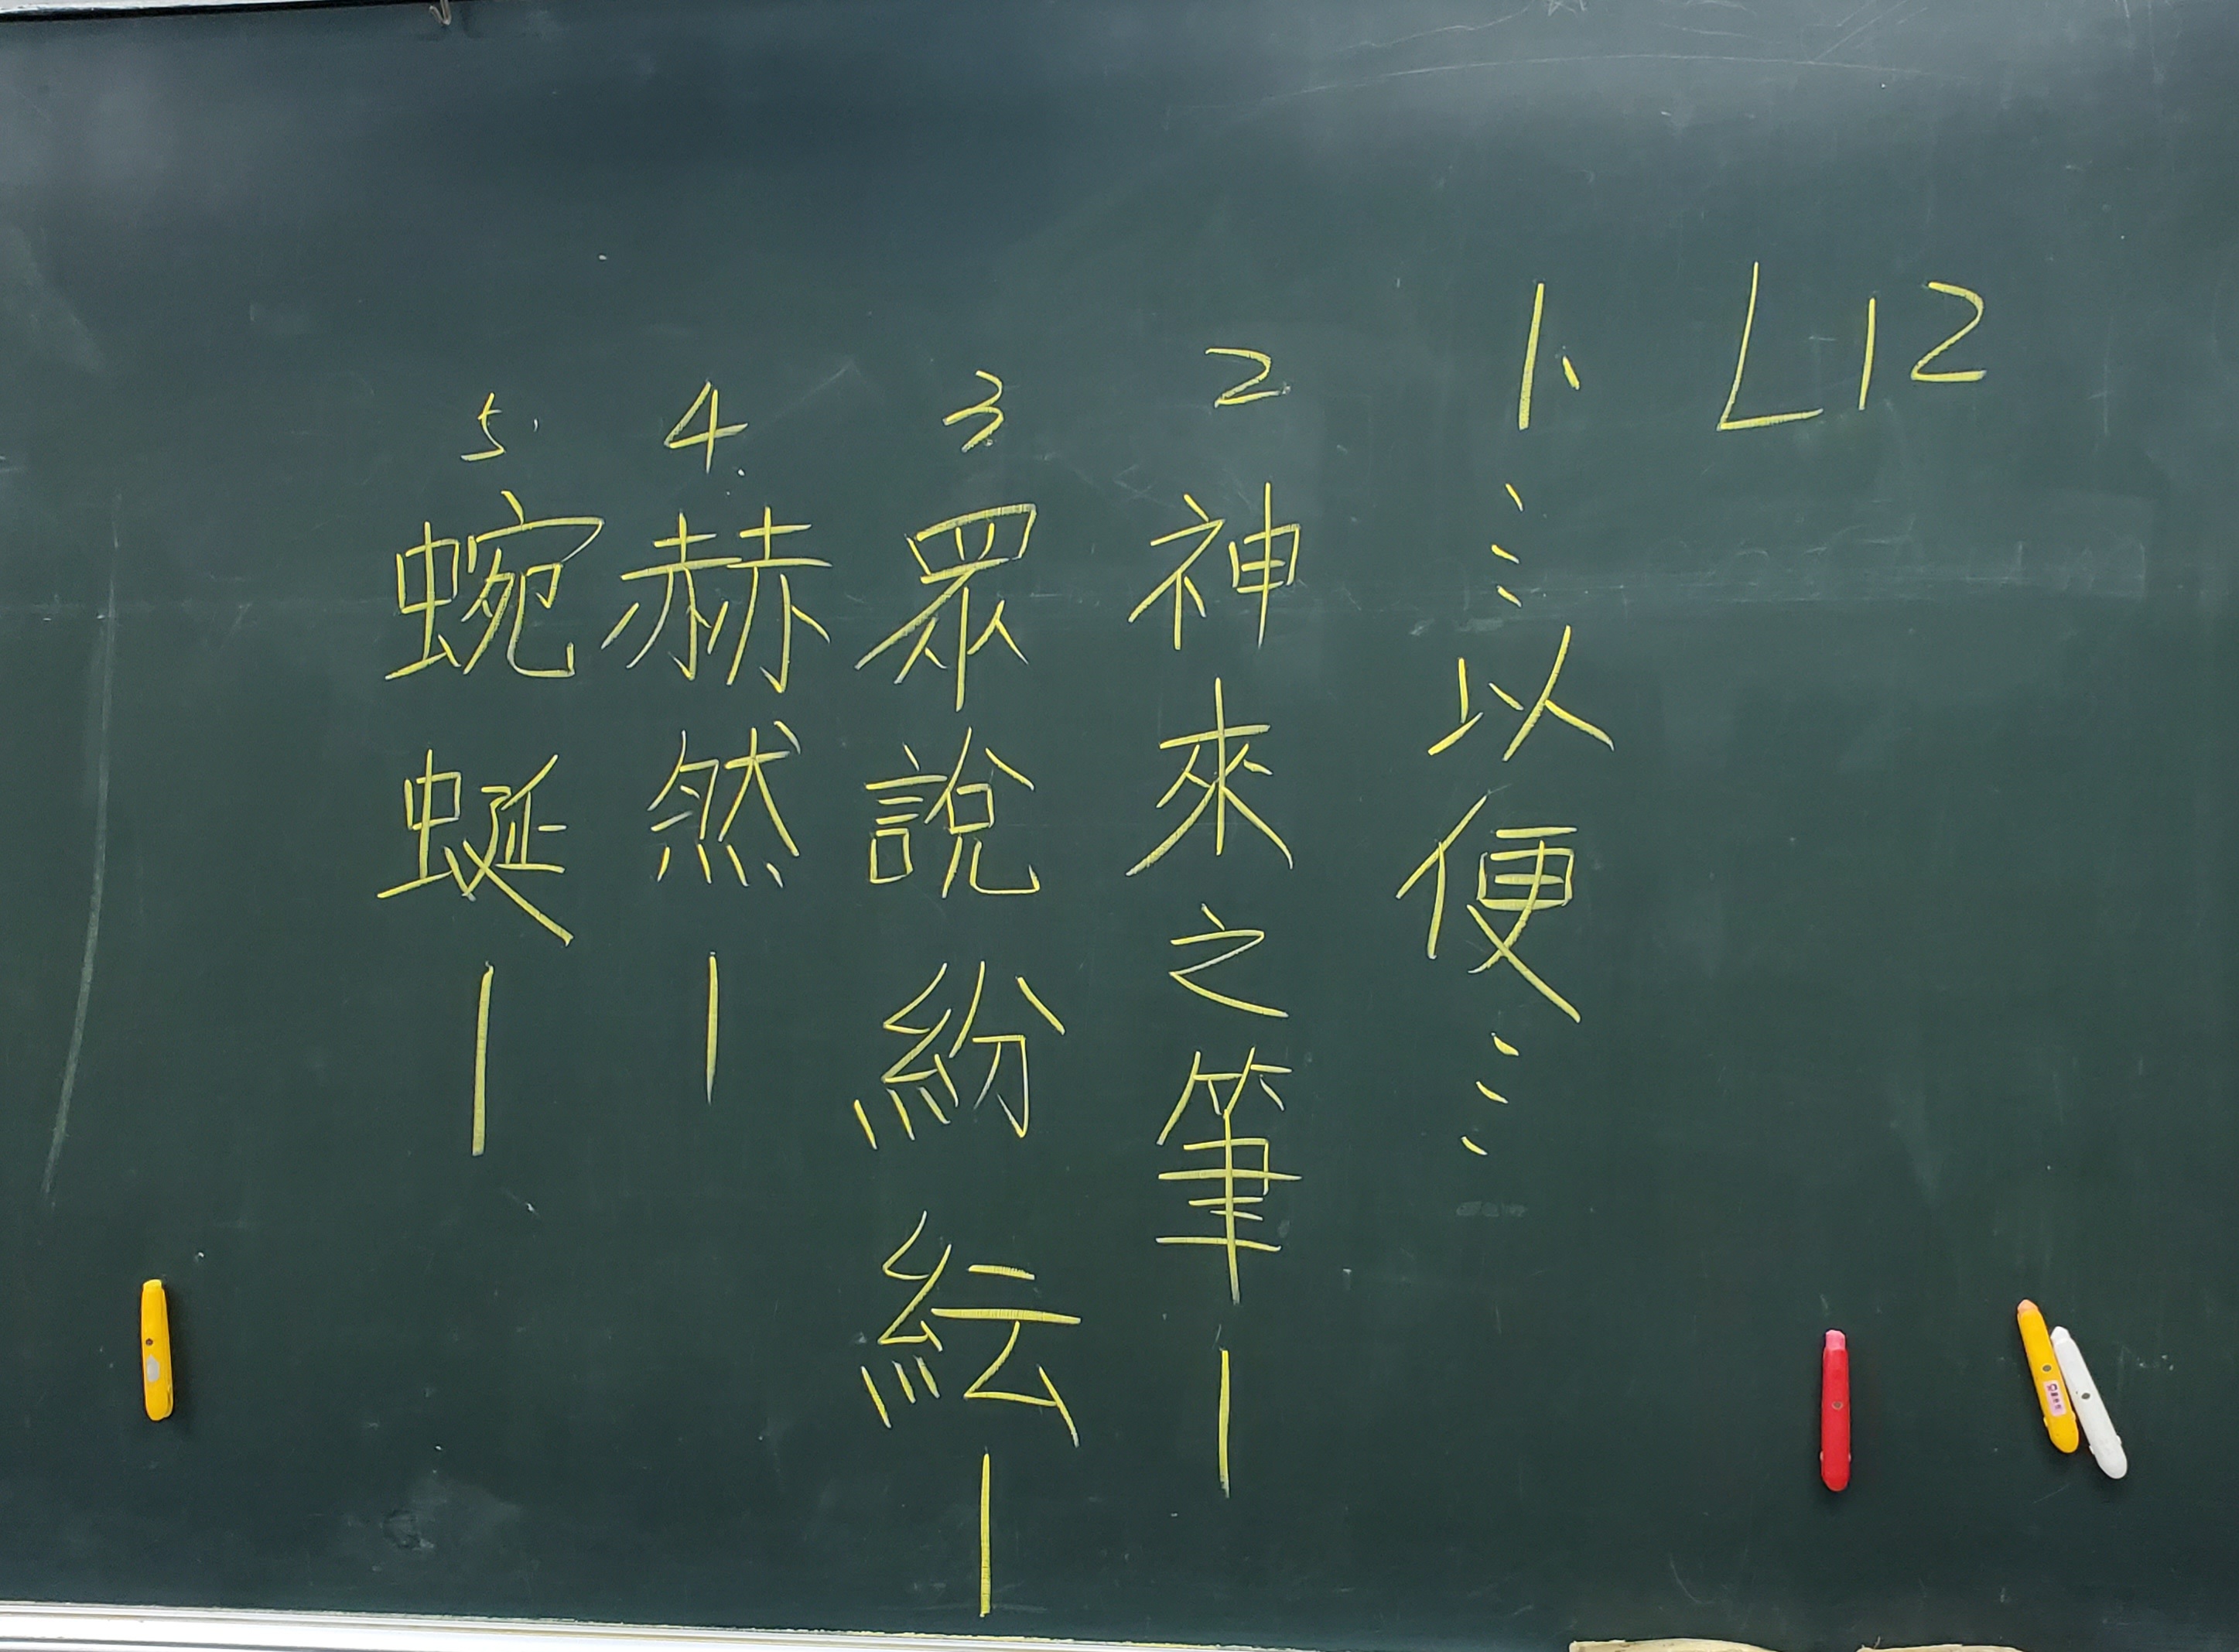 L12
1、……以便……
2 神來之筆—
3 眾說紛紜—
4. 赫然—
5. 蜿蜒—